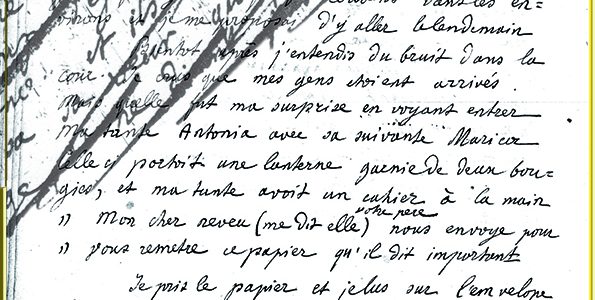 dans les en-
virons et je me proposai d'y aller le lendemain
Bientot après j'entendis du bruit dans la
cour. Je crus que mes gens étoient arrivés.
Mais quelle fut ma surprise en voyant entrer
Ma tante Antonia avec sa suivante Marica
Celle ci portoit une lanterne garnie de deux bou-
gies, et ma tante avoit un cahier à la main
» Mon cher neveu (me dit elle) votre pere nous envoye pour
» vous remetre ce papier qu'il dit important
Je pris le papier et je lus sur l'envelope